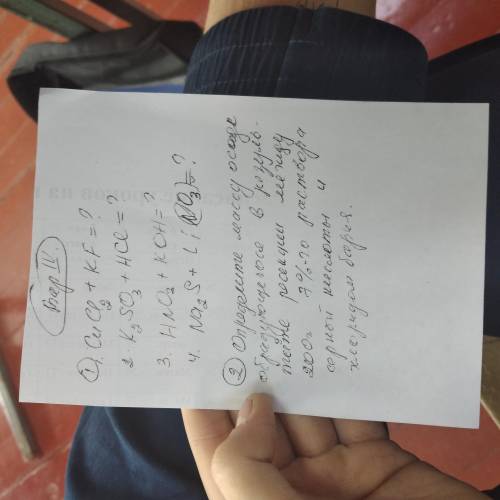 Вар IV
① 1. CuCl2 + KF = ?
2. K2SO3 + HCl = ?
3. HNO2 + KOH = ?
4. Na2S + Li(NO3) = ?
② Определите массу осадка
образующегося в резуль-
тате реакции между
200г 7%-го раствора
серной кислоты и
хлоридом бария.